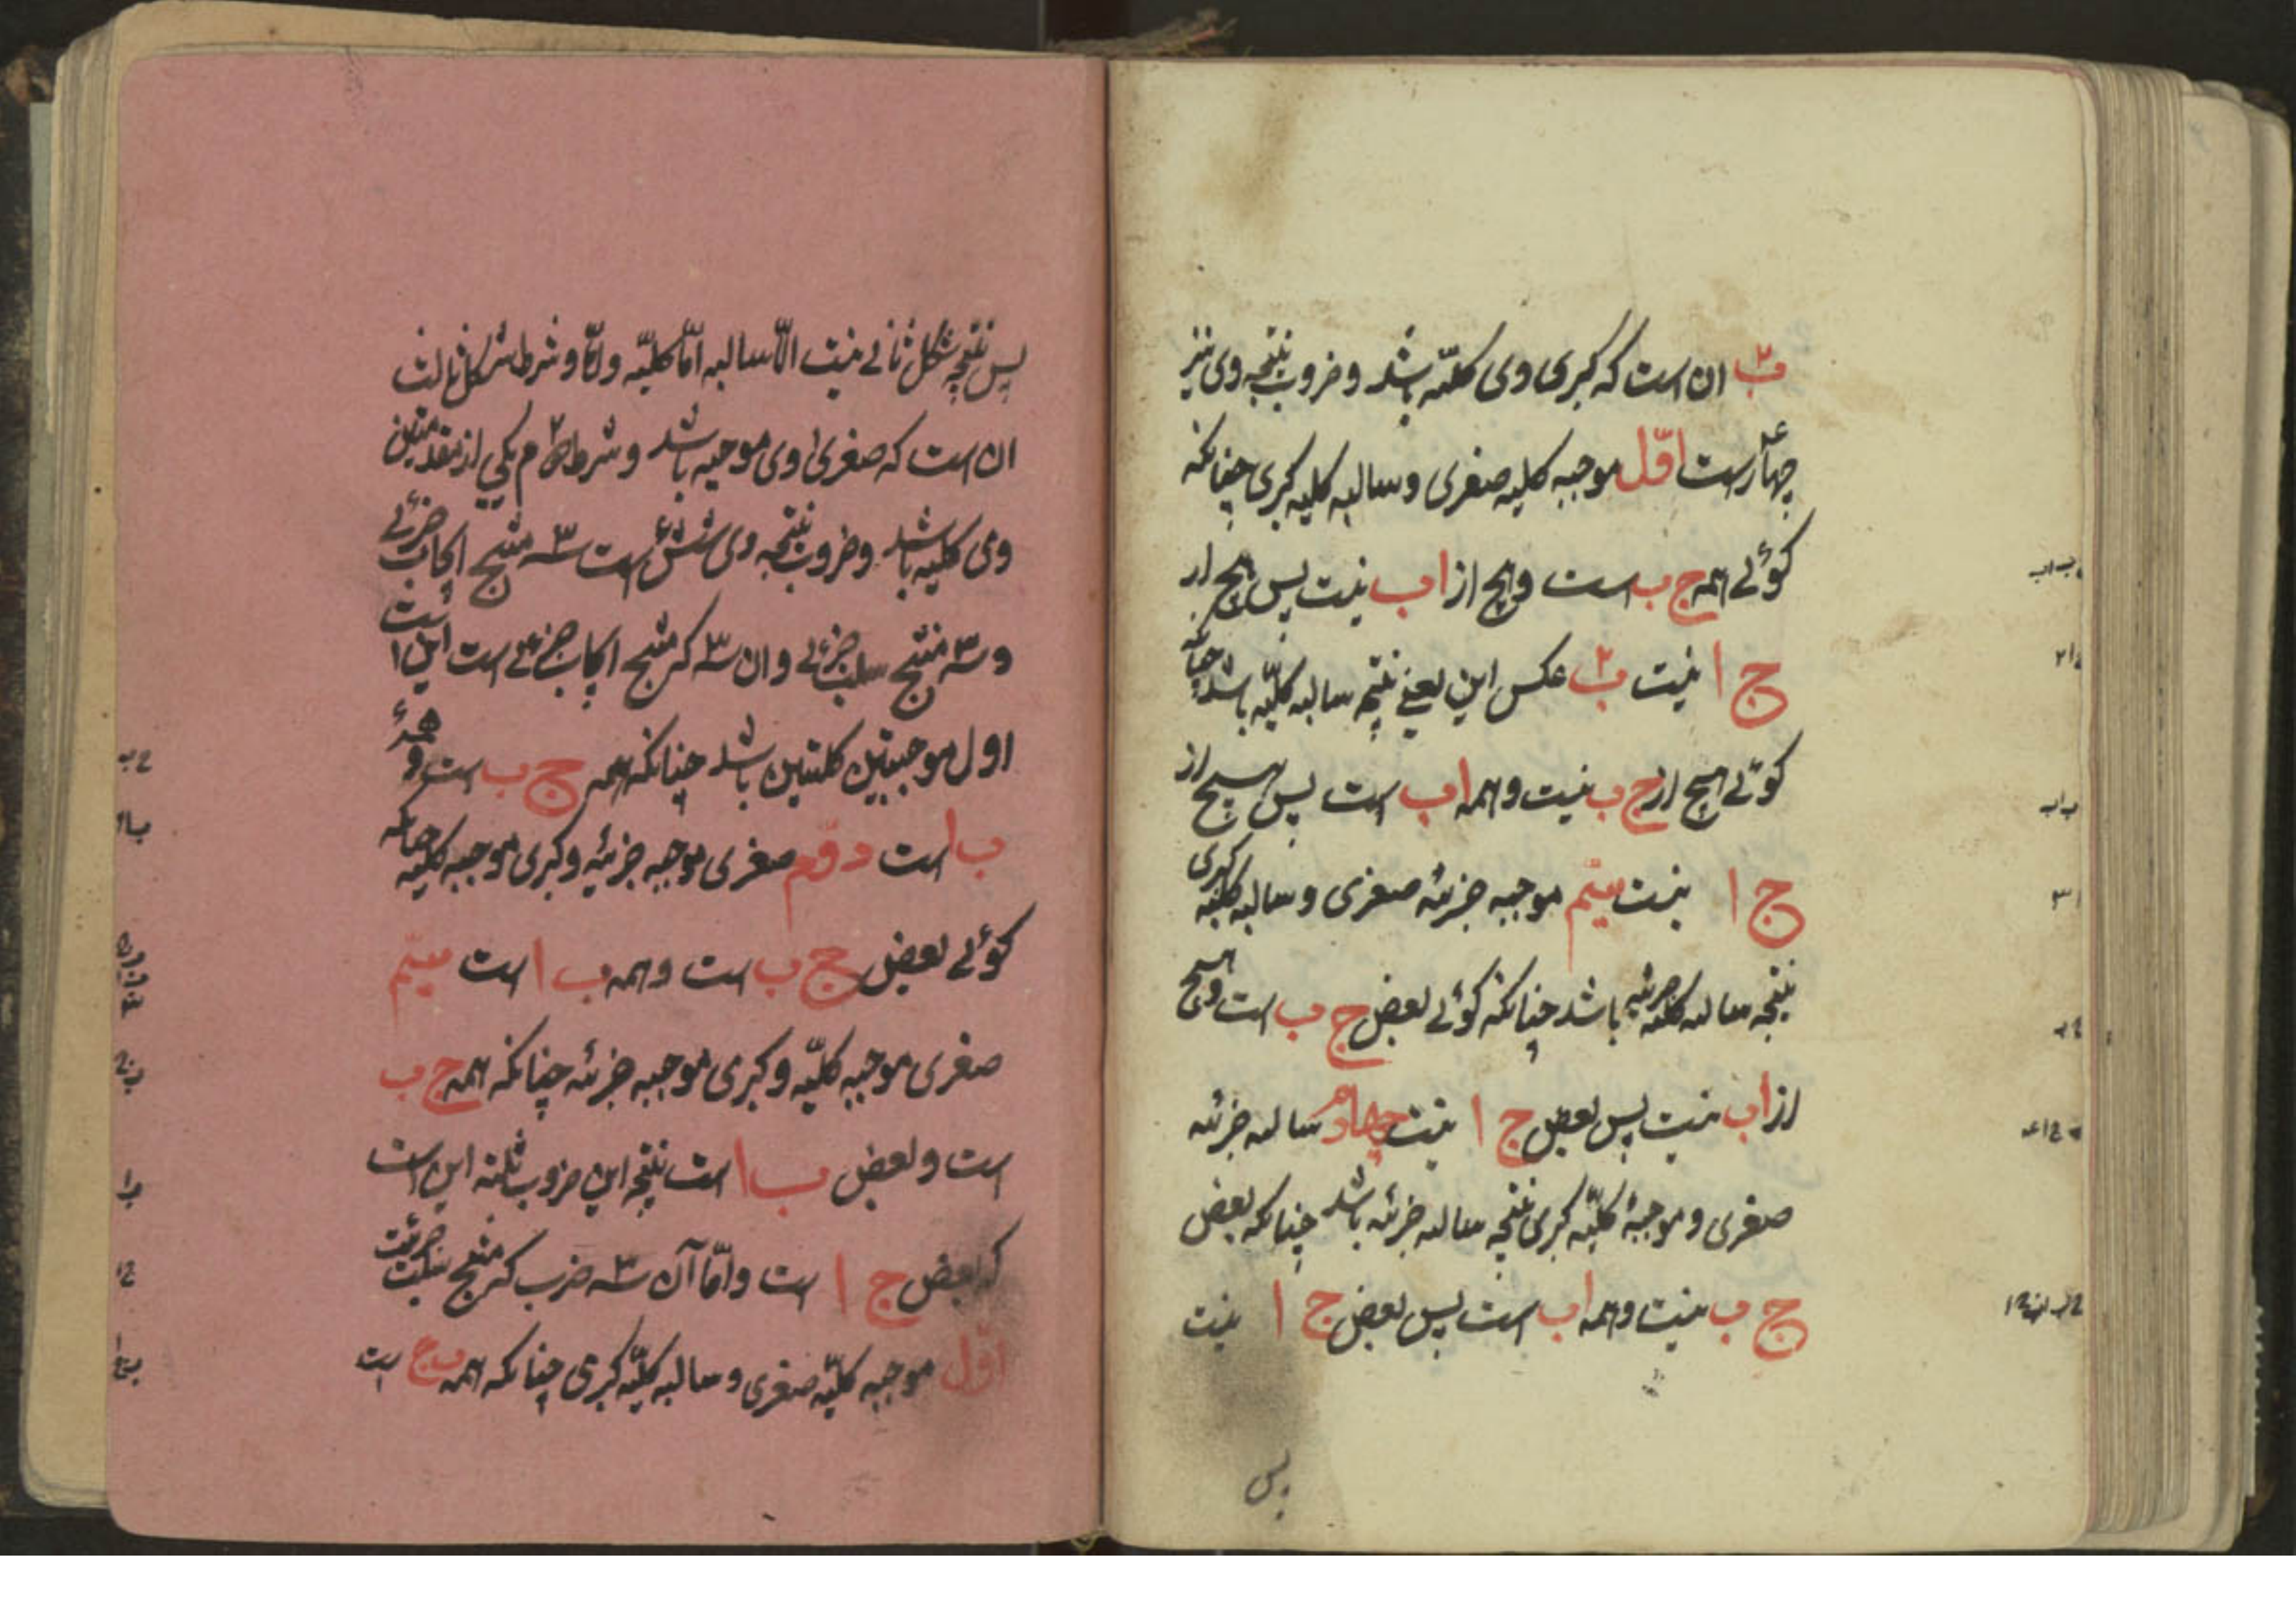 ب۲ ان است که کبری وی کلیّه باشد و ضروب نتیجه وی نیز
چهار است اوّل موجبه کلیه صغری و سالبه کلیه کبری چنانکه
کوئی همه ج ب است و هیچ از ا ب نیست پس هیچ از
ج ا نیست ب۲ عکس این یعنی نتیجه سالبه کلیّه باشد چنانکه
کوئی هیچ از ج ب نیست و همه ا ب است پس هیچ از
ج ا نیست سیّم موجبه جزئیه صغری و سالبه کلیه کبری
نتیجه سالبه جزئیه باشد چنانکه کوئی بعض ج ب است و هیچ
از ا ب نیست پس بعض ج ا نیست چهارم سالبه جزئیه
صغری و موجبهٔ کلیّه کبری نتیجه سالبه جزئیه باشد چنانکه بعض
ج ب نیست و همه ا ب است پس بعض ج ا نیست
پس
پس نتیجه شکل ثانی نیست الّا سالبه امّا کلیّه و امّا و شرط شکل ثالث
ان است که صغری وی موجبه باشد و شرط دوم یکی از مقدمتین
وی کلیه باشد و ضروب نتیجه وی شش است ۳ سه منتج ایجاب جزئی
و سه منتج سلب جزئی و ان سه که منتج ایجاب جزئی است این است
اول موجبتین کلیتین باشد چنانکه همه ج ب است و همهٔ
ب ا است دوّم صغری موجبه جزئیه و کبری موجبه کلیه چنانکه
کوئی بعض ج ب است و همه ب ا است سیّم
صغری موجبه کلیّه و کبری موجبه جزئیه چنانکه همه ج ب
است و بعض ب ا است نتیجه این ضروب ثلثه این است
که بعض ج ا است و امّا آن سه ضرب که منتج سلب جزئیت
اوّل موجبه کلیّه صغری و سالبه کلیّه کبری چنانکه همه ب ج است